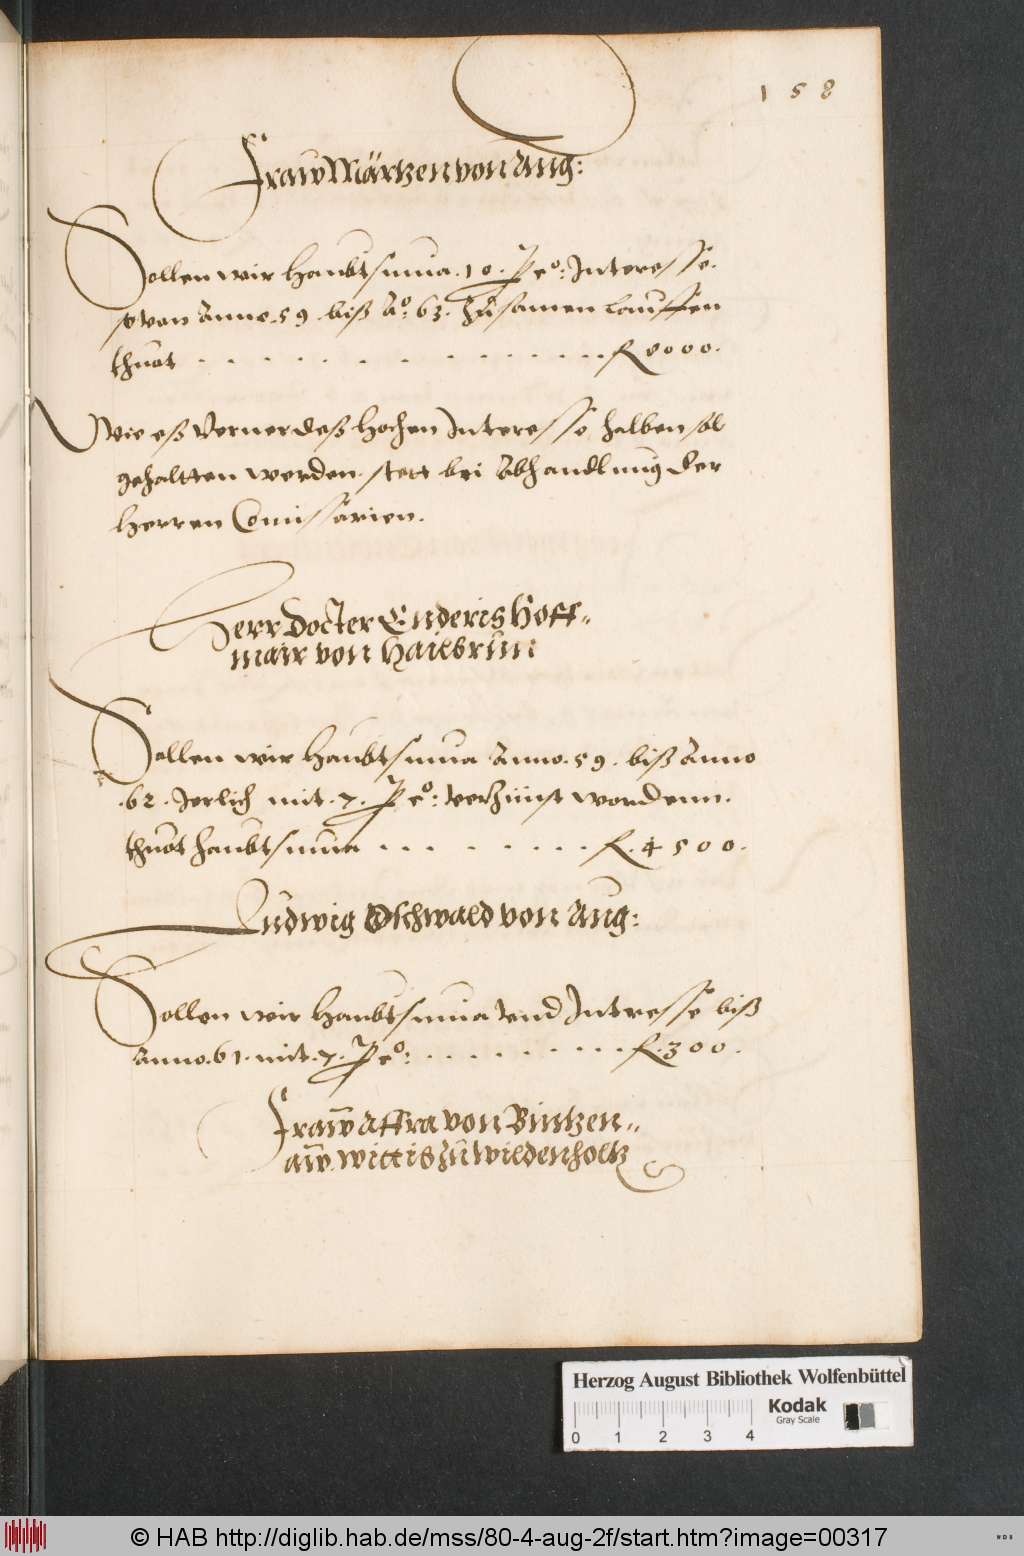 158
Fraw Märtzen von Aug:
Sollen wir Haubtsuma .10. Pco: Interesse.
so von Anno .59. biß Ao. 63. zusamen lauffen
thuot . . . . . . . . . . . . . . . fl 8000.
Wie eß verner deß hochen Interesse halben sol
gehaltten werden stett bei Abhandlung der
Herren Comissarien.
Herr Docter Enderis Hoff„
mair von Hailbrun
Sollen wir Haubtsuma Anno .59. biß Anno
.62. Jerlich mit .7. Pco: verzünst wordenn.
thuot haubtsuma . . . . . . . . fl. 4500.
Ludwig Oschwald von Aug:
Sollen wir Haubtsuma vnd Interesse biß
Anno .61. mit .7. Pco: . . . . . . . . . fl. 300.
Fraw Affra von Bintzen„
aw. wittis zu Wildenholtz
Herzog August Bibliothek Wolfenbüttel
Kodak
Gray Scale
0 1 2 3 4
© HAB http://diglib.hab.de/mss/80-4-aug-2f/start.htm?image=00317